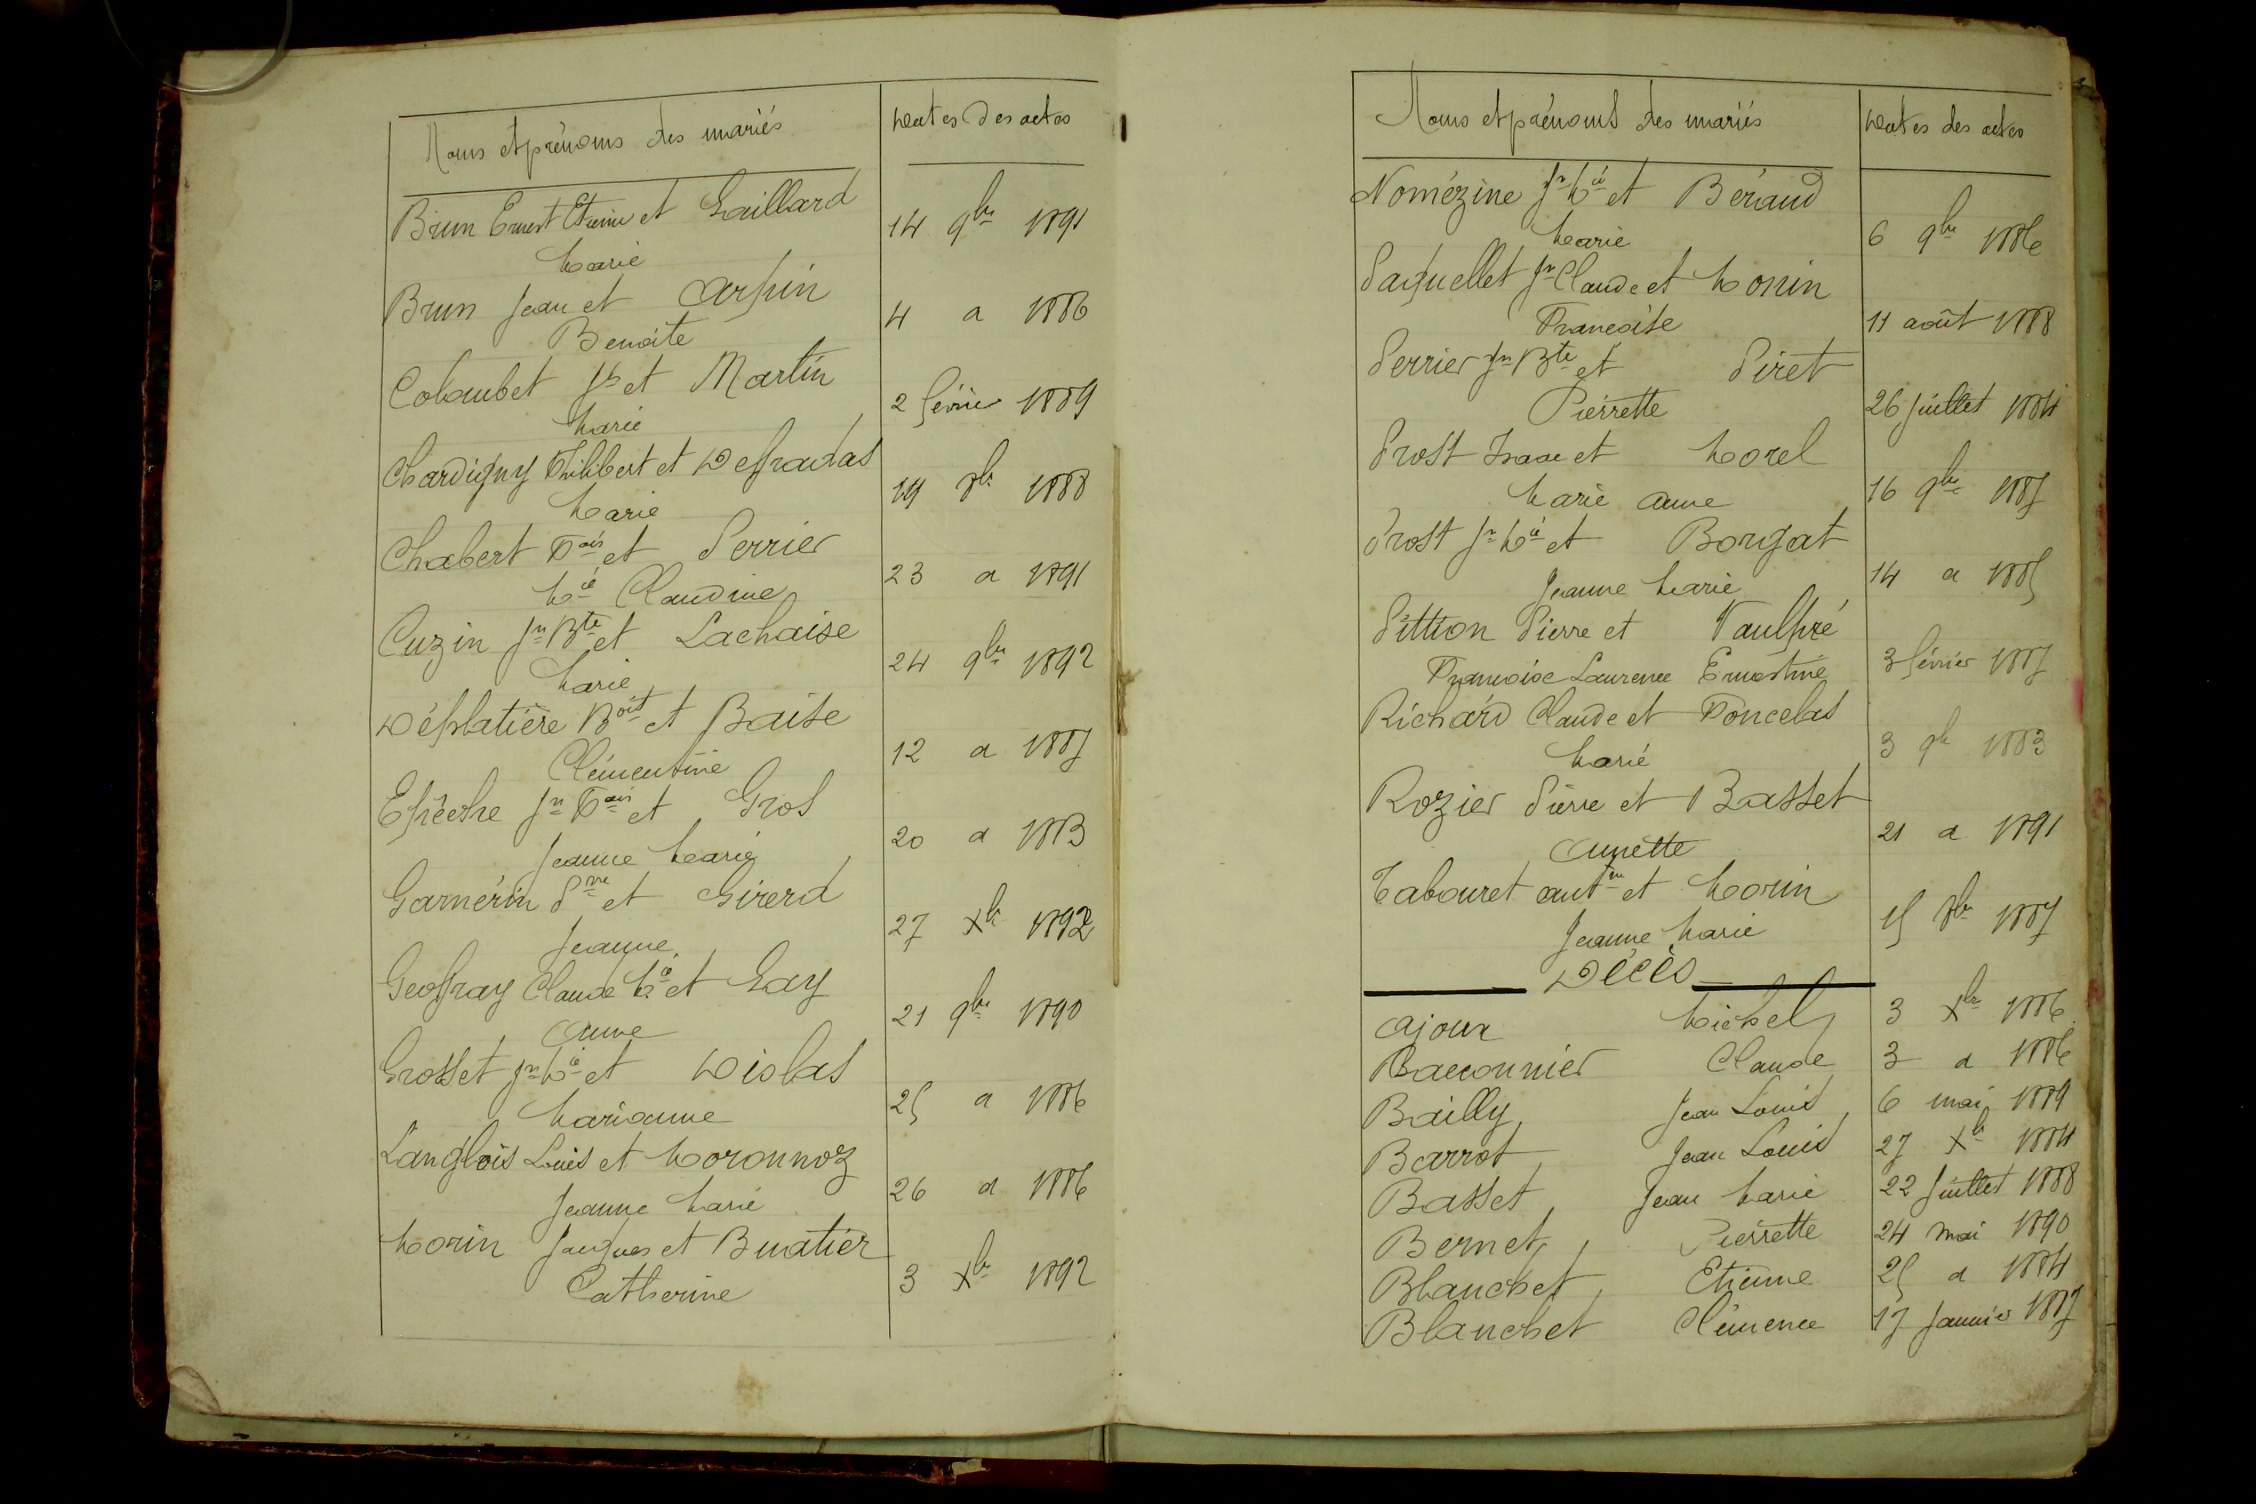 Noms et prénoms des mariés
Dates des actes
Brun Ernest Etienne et Gaillard
Marie
14 9bre 1891
Brun Jean et Arpin
Benoite
4 a 1886
Colaubet Jh et Martin
Marie
2 février 1889
Chardigny Philibert et Depradas
Marie
19 8bre 1888
Chabert Fois et Perrier
Mie Claudine
23 a 1891
Cuzin Jn Bte et Lachaise
Marie
24 9bre 1892
Déplatière Boit et Baise
Clémentine
12 a 1887
Epêche Jn Fois et Gros
Jeanne Marie
20 a 1883
Garnérin Prre et Girerd
Jeanne
27 Xbre 1892
Geoffray Claude Mie et Gay
Anne
21 9bre 1890
Grosset Jn Mie et Diolas
Marianne
25 a 1886
Langlois Louis et Moronnoz
Jeanne Marie
26 a 1886
Morin Jacques et Buatier
Catherine
3 Xbre 1892
Noms et prénoms des mariés
Dates des actes
Nomézine Jn Mie et Béraud
Marie
6 9bre 1886
Paquellet Jn Claude et Monin
Françoise
11 août 1888
Perrier Jn Bte et Piret
Pierrette
26 Juillet 1884
Prost Isaac et Morel
Marie Anne
16 9bre 1887
Prost Jn Mie et Borgat
Jeanne Marie
14 a 1885
Pittion Pierre et Vaulpré
Françoise Laurence Ernestine
3 février 1887
Richard Claude et Poncelas
Marie
3 9bre 1883
Rozier Pierre et Basset
Annette
21 a 1891
Tabouret Antne et Morin
Jeanne Marie
15 8bre 1887
Décès
Ajoux Michel 3 Xbre 1886
Baconnier Claude 3 a 1886
Bailly Jean Louis 6 mai 1889
Barrot Jean Louis 27 Xbre 1884
Basset Jean Marie 22 Juillet 1888
Bernet Pierrette 24 Mai 1890
Blanchet Etienne 25 a 1884
Blanchet Clémence 17 Janvier 1887